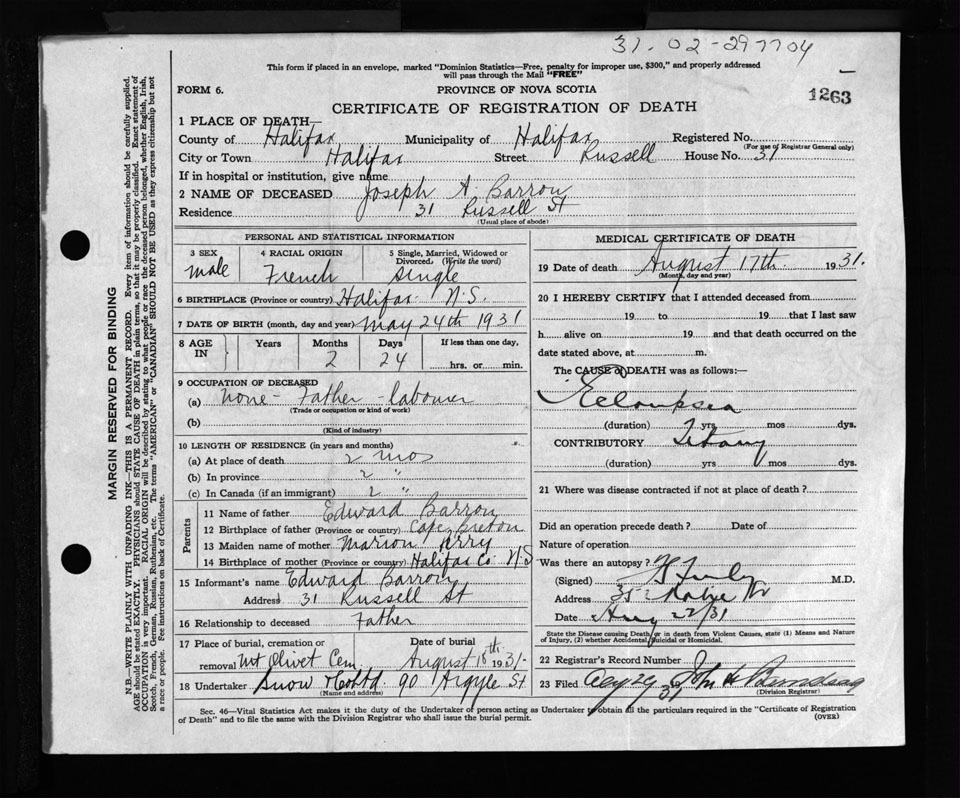 31.02-297704
This form if placed in an envelope, marked "Dominion Statistics—Free, penalty for improper use, $300," and properly addressed
will pass through the Mail "FREE"
FORM 6.
PROVINCE OF NOVA SCOTIA
1263
CERTIFICATE OF REGISTRATION OF DEATH
1 PLACE OF DEATH—
County of Halifax Municipality of Halifax Registered No.
(For use of Registrar General only)
City or Town Halifax Street Russell House No. 31
If in hospital or institution, give name
2 NAME OF DECEASED Joseph A. Barron
Residence 31 Russell St
(Usual place of abode)
PERSONAL AND STATISTICAL INFORMATION
3 SEX
male
4 RACIAL ORIGIN
French
5 Single, Married, Widowed or
Divorced (Write the word)
single
6 BIRTHPLACE (Province or country) Halifax N.S.
7 DATE OF BIRTH (month, day and year) May 24th 1931
8 AGE IN
Years Months Days If less than one day,
2 24
hrs. or min.
9 OCCUPATION OF DECEASED
(a) None - Father - labourer
(Trade or occupation or kind of work)
(b)
(Kind of industry)
10 LENGTH OF RESIDENCE (in years and months)
(a) At place of death 2 mos
(b) In province 2 "
(c) In Canada (if an immigrant) 2 "
Parents
11 Name of father Edward Barron
12 Birthplace of father (Province or country) Cape Breton
13 Maiden name of mother Marion
14 Birthplace of mother (Province or country) Halifax Co N.S
15 Informant's name Edward Barron
Address 31 Russell St
16 Relationship to deceased Father
17 Place of burial, cremation or
removal Mt Olivet Cem.
Date of burial
August 18th 1931-
18 Undertaker Snow & Co Ltd. 90 Argyle St
(Name and address)
MEDICAL CERTIFICATE OF DEATH
19 Date of death August 17th 1931.
(Month, day and year)
20 I HEREBY CERTIFY that I attended deceased from
19 to 19 that I last saw
h alive on 19 and that death occurred on the
date stated above, at m.
The CAUSE of DEATH was as follows:—
Eclampsia
(duration) yrs mos dys.
CONTRIBUTORY Tetany
(duration) yrs mos dys.
21 Where was disease contracted if not at place of death?
Did an operation precede death? Date of
Nature of operation
Was there an autopsy?
(Signed) M.D.
Address
Date Aug 22/31
State the Disease causing Death, or in death from Violent Causes, state (1) Means and Nature
of Injury, (2) whether Accidental, Suicidal or Homicidal.
22 Registrar's Record Number
23 Filed Aug 29 31 John
(Division Registrar)
Sec. 46—Vital Statistics Act makes it the duty of the Undertaker or person acting as Undertaker to obtain all the particulars required in the "Certificate of Registration
of Death" and to file the same with the Division Registrar who shall issue the burial permit.
(OVER)
MARGIN RESERVED FOR BINDING
N.B.—WRITE PLAINLY WITH UNFADING INK—THIS IS A PERMANENT RECORD. Every item of information should be carefully supplied.
AGE should be stated EXACTLY. PHYSICIANS should STATE CAUSE OF DEATH in plain terms, so that it may be properly classified. Exact statement of
OCCUPATION is very important. RACIAL ORIGIN will be described by stating to what people or race the deceased person belonged, whether English, Irish,
Scotch, French, German, Russian, Ruthenian, etc. The terms "AMERICAN" or "CANADIAN" SHOULD NOT BE USED as they express citizenship but not
a race or people. Fee instructions on back of Certificate.